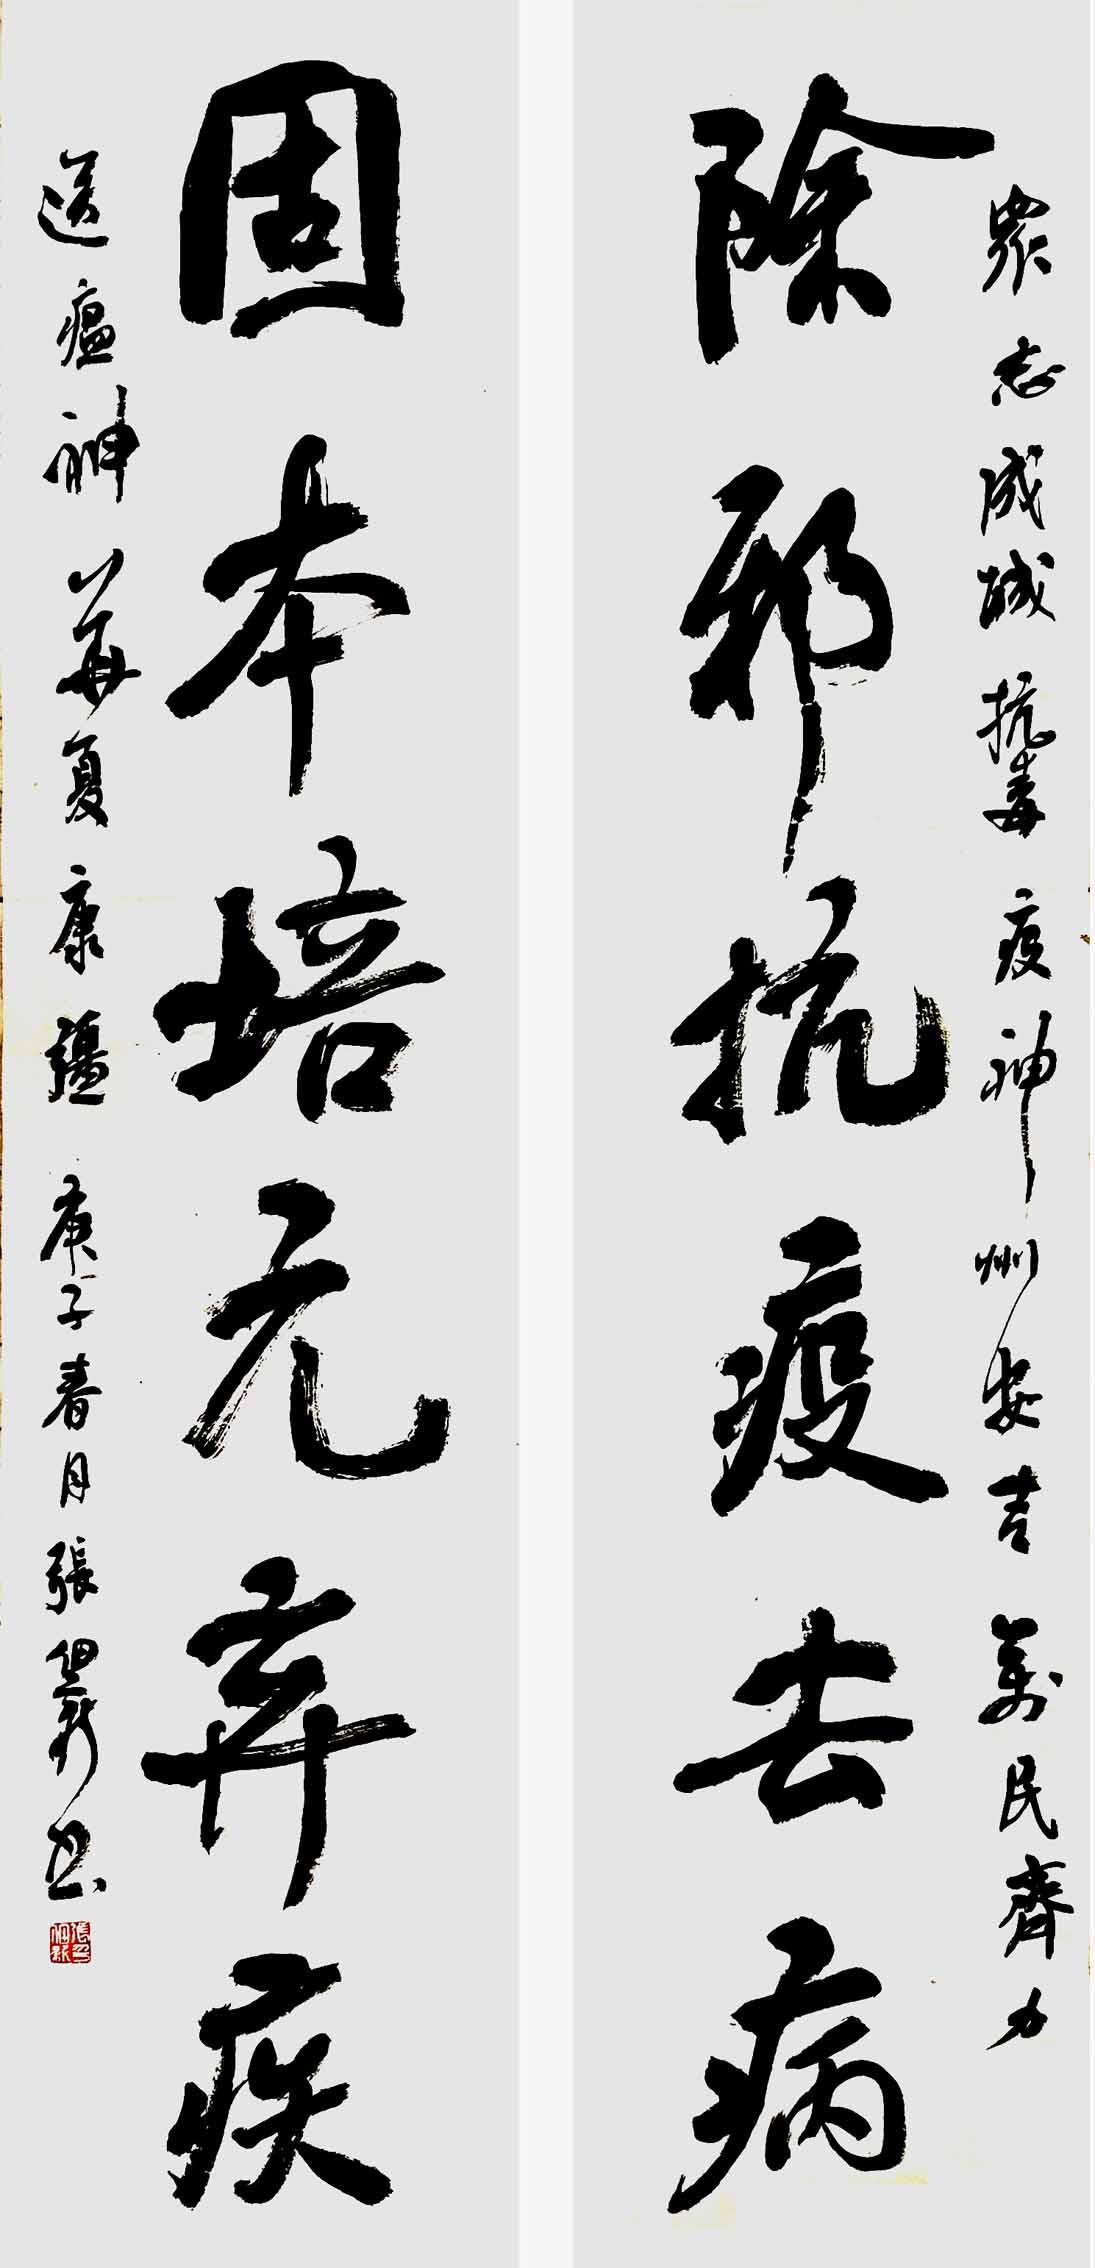 眾志成城抗毒疫神州安吉萬民齊力
除邪抗疫去病
固本培元弃疾
送瘟神華夏康疆庚子春月張新書